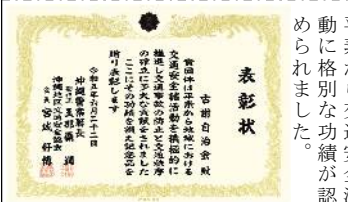 平素より交通安全活
動に格別な功績が認
められました。
表彰状
古謝自治会 殿
貴団体は平素から地域における
交通安全諸活動を積極的に
推進し交通事故の防止と交通秩序
の確立に多大な貢献をされました
ここにその功績を讃え記念品を
贈り表彰します
令和五年六月二十二日
沖縄警察署長
玉那覇
沖縄地区交通安全協会
会長 宮城